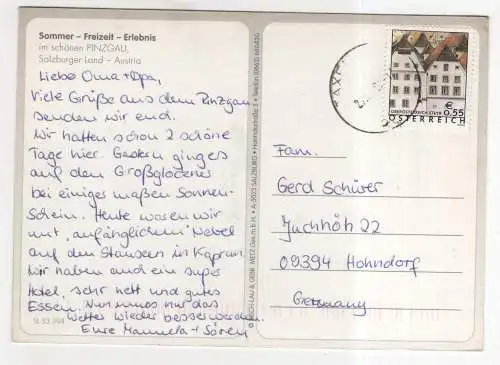 Sommer – Freizeit – Erlebnis
im schönen PINZGAU,
Salzburger Land – Austria
Liebe Oma + Opa,
Viele Grüße aus dem Pinzgau
senden wir euch.
Wir hatten schon 2 schöne
Tage hier. Gestern ging es
auf den Großglockner
bei einigermaßen Sonnen-
schein. Heute waren wir
mit "anfänglichem" Nebel
auf den Stauseen in Kaprun.
Wir haben auch ein super
Hotel, sehr nett und gutes
Essen. Nun muss nur das
Wetter wieder besser werden.
Eure Manuela + Sören
A-5023 SALZBURG • Telefon
€ 0,55
ÖSTERREICH
Fam.
Gerd
Juchhöh 22
09394 Hohndorf
Germany